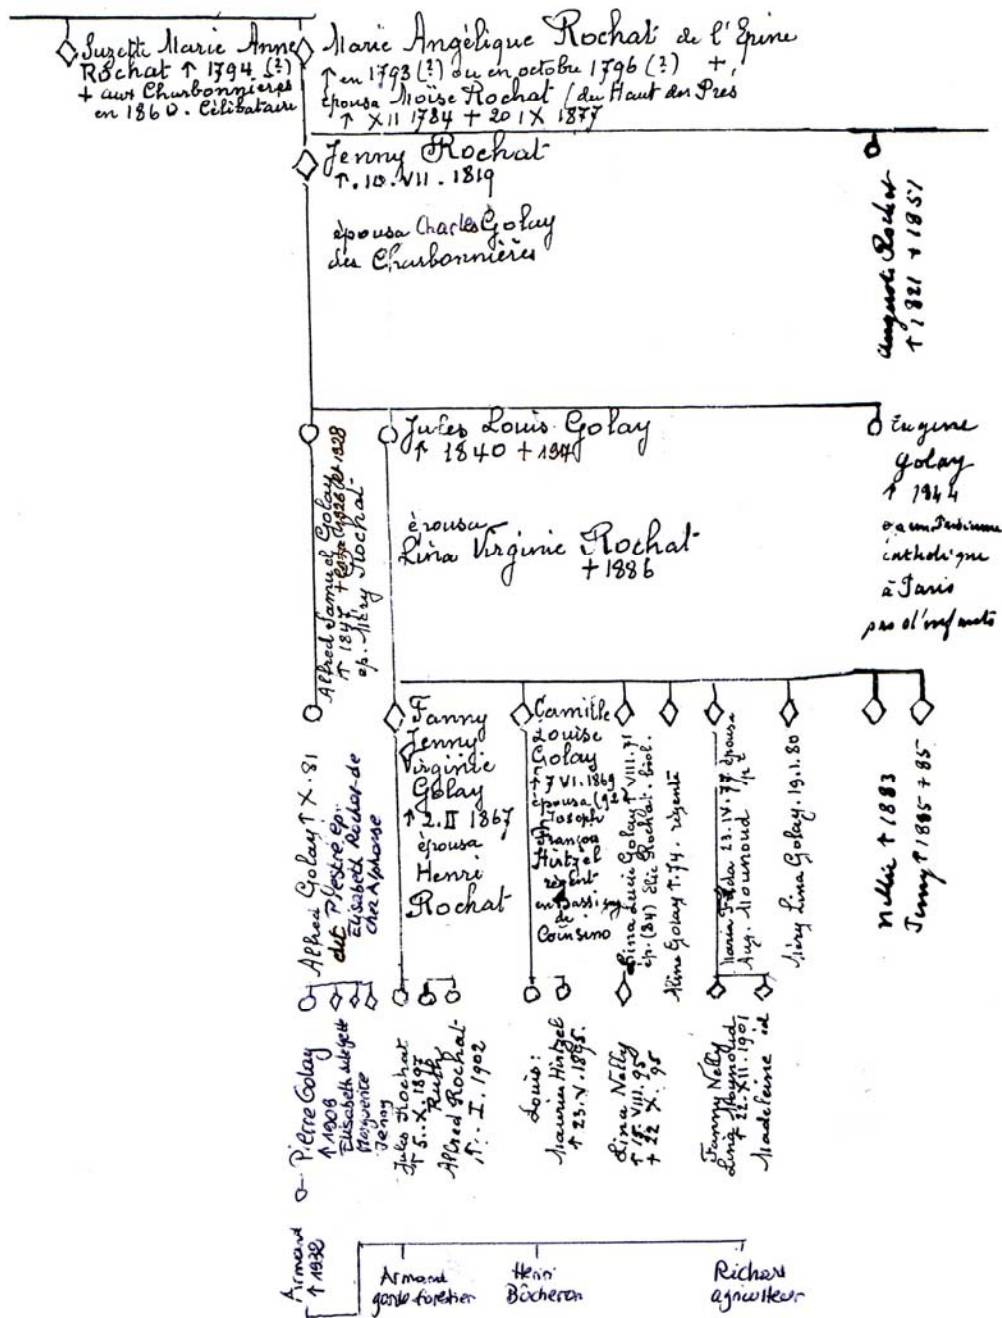 Suzette Marie Anne
Rochat ↑ 1794 (?)
+ aux Charbonnières
en 1860. Célibataire
Marie Angélique Rochat de l'Epine
↑ en 1793 (?) ou en octobre 1796 (?) +
épousa Moïse Rochat (du Haut des Prés
↑ XII 1784 + 20 IX 1877
Jenny Rochat
↑. 10. VII. 1819
épousa Charles Golay
des Charbonnières
Rochat
↑ 1821 + 1851
Alfred Samuel Golay
↑ 1847 +
ép. Méry Rochat
Jules Louis Golay
↑ 1840 +
épousa
Lina Virginie Rochat
+ 1886
Eugène
Golay
↑ 1944
catholique
à Paris
pas d'enfants
Alfred Golay ↑ X. 81
dit ép.
Elisabeth Rochat de
chez Alphonse
Fanny
Jenny
Virginie
Golay
↑ 2. II 1867
épousa
Henri
Rochat
Camille
Louise
Golay
↑ 7 VI. 1869
épousa (92
Joseph
François
Hirtzel
régent
en
de
Lina Lucie Golay ↑ VIII. 71
ép. (84) Elie Rochat. biol.
Aline Golay ↑. 74. régente
Maria 23. IV. 77 épousa
Aug. Mounoud
Méry Lina Golay. 19. 1. 80
Nellie ↑ 1883
Jenny ↑ 1885 + 85
Pierre Golay
↑ 1908
Elisabeth
Marguerite
Jenny
Jules Rochat
↑ 5. X. 1897
Ruth
Alfred Rochat
↑. I. 1902
Louis:
Maurice Hirtzel
↑ 23. V. 1895.
Lina Nelly
↑ 15. VIII. 95
+ 22 X. 95
Fanny Nelly
Lina Mounoud
↑ 22. XII. 1901
Madeleine id
Armand
↑ 1932
Armand
garde forestier
Henri
Bûcheron
Richard
agriculteur